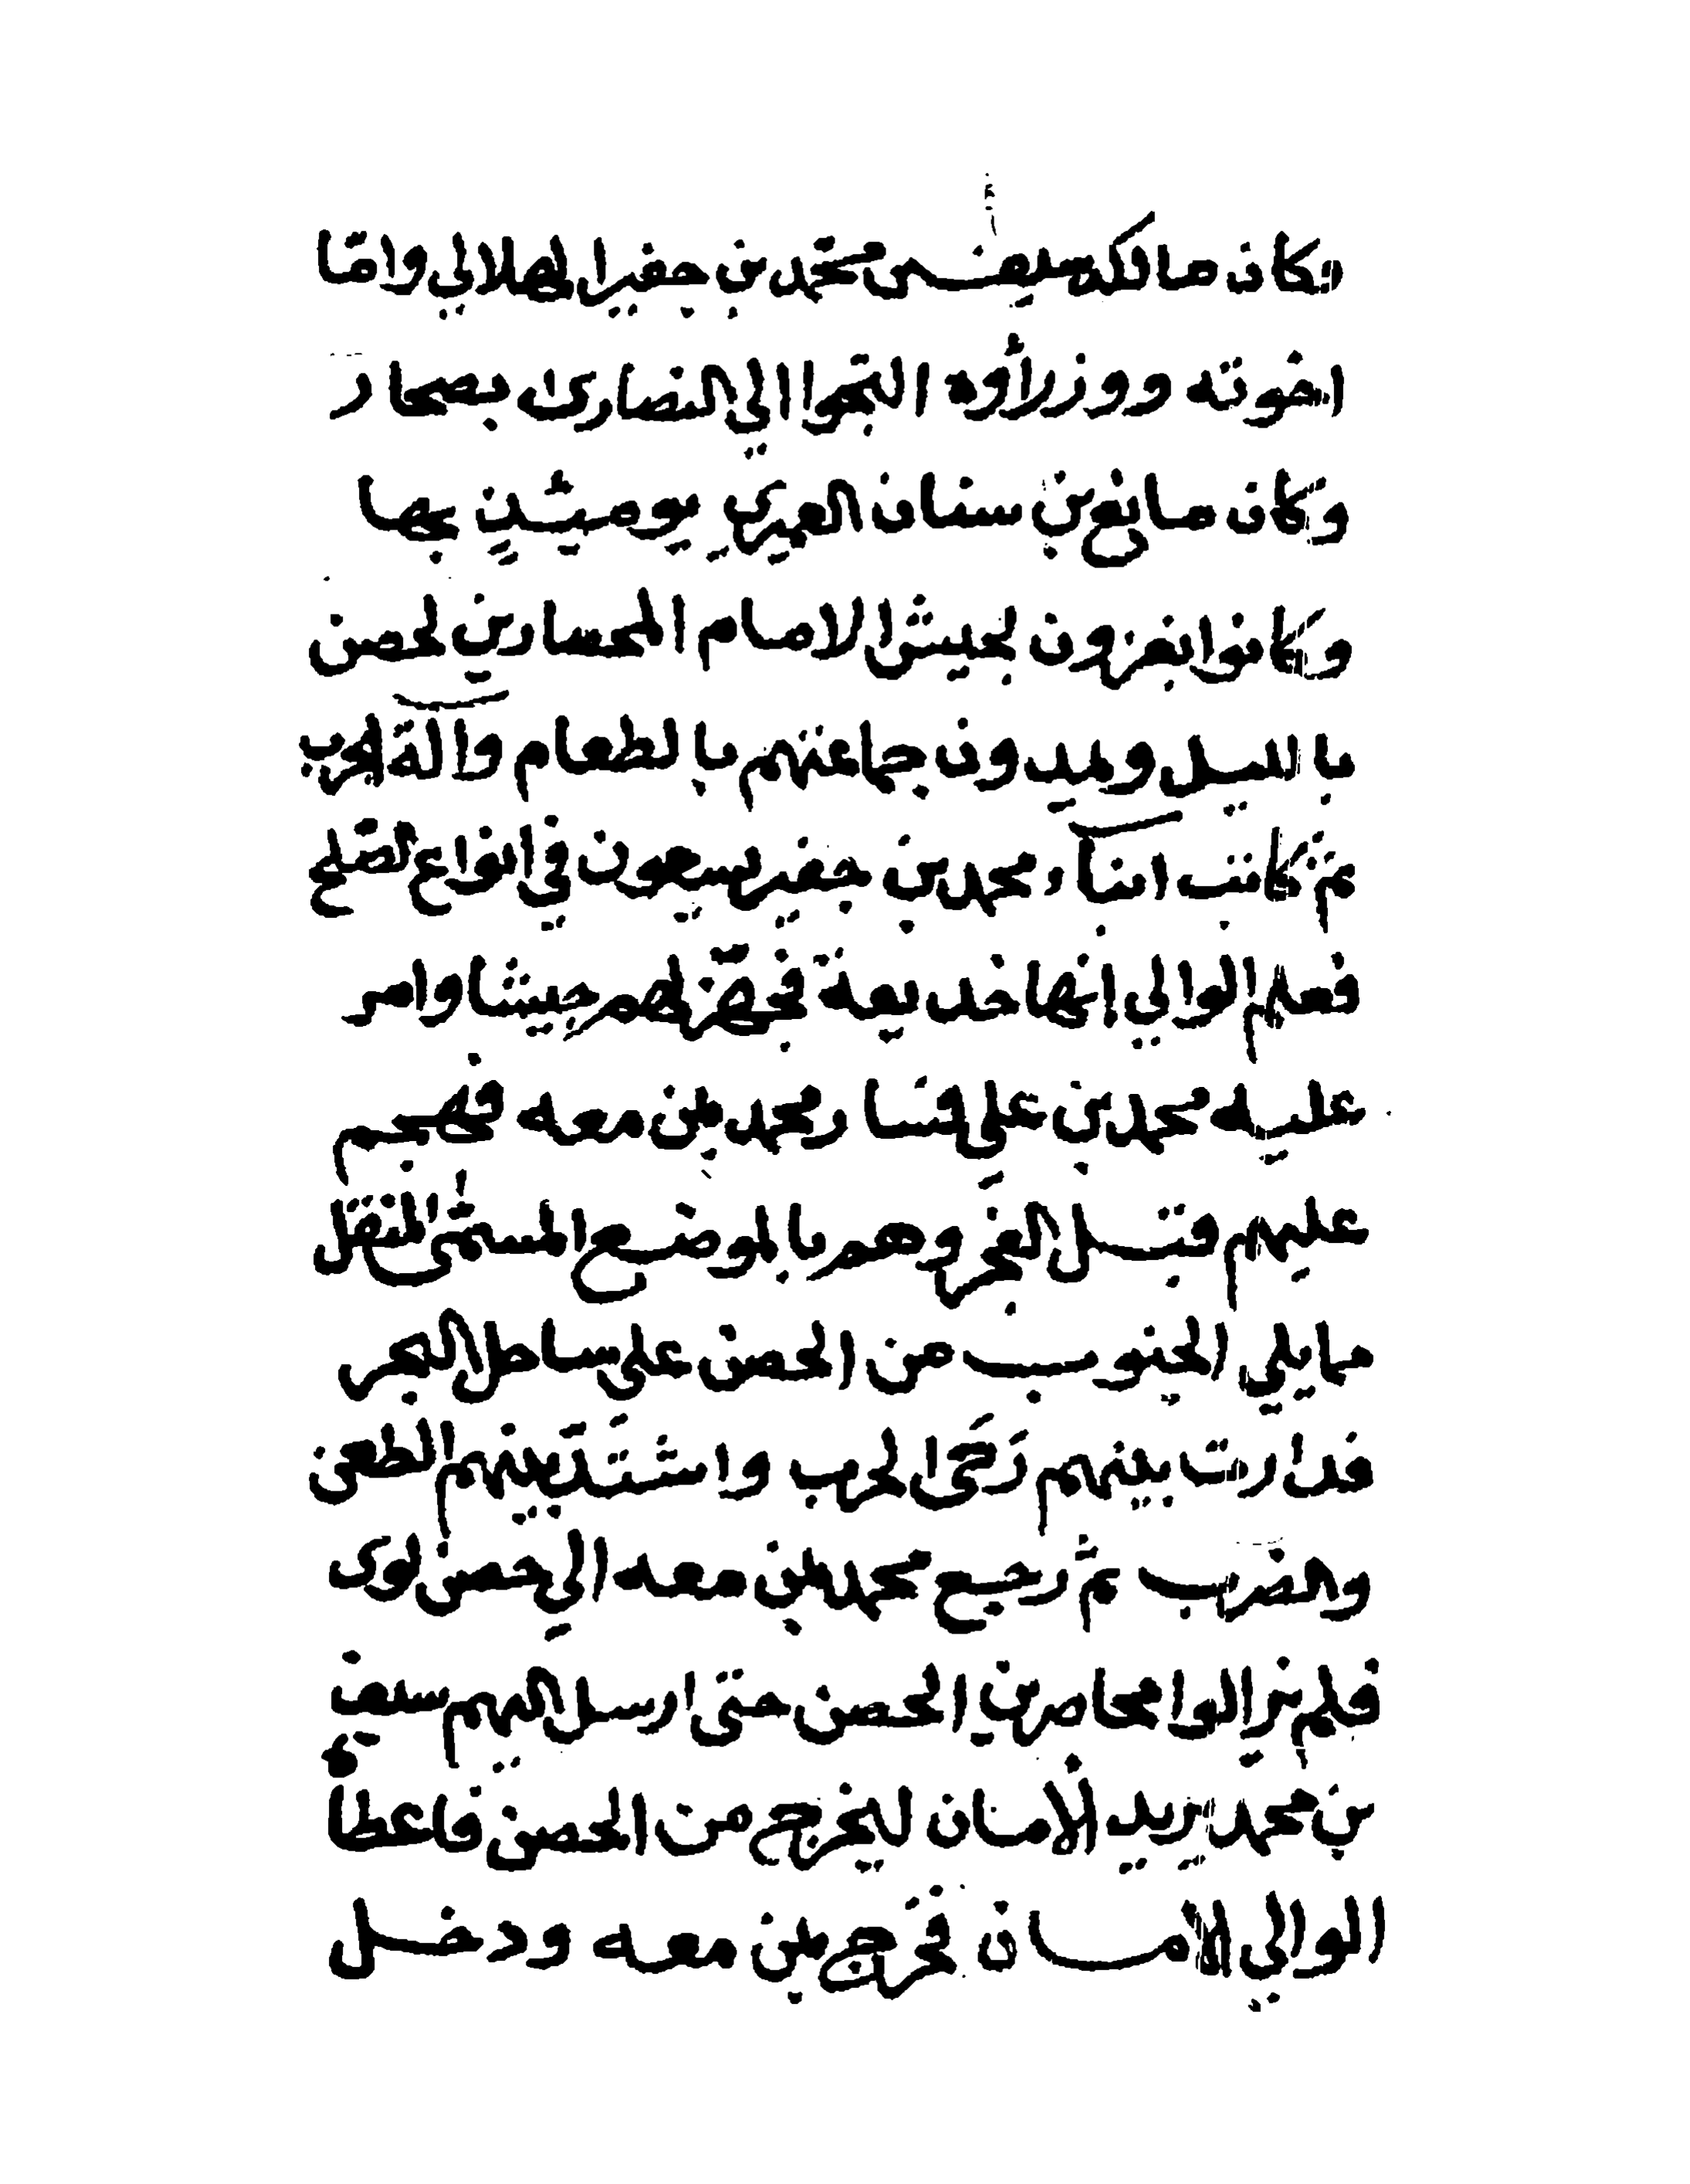 وكان مالكه سيف بن محمد بن جفير الهلالي وامّا
اخوته ووزراؤه التجوا الي النصارى بصحار
وكان مانع بن سنان العميري يوميئذٍ بها
وكانوا يغزون لجيش الامام المحسارين لحصن
بالليل ويمدون جماعتهم بالطعام وآلة الحرب
ثم كانت ابنآء محمد بن جفير يسعون في انواع الصّلح
فعلم الوالي انها خديعة فجهّز لهم جيشا وامر
عليه محمد بن علي فسار محمد بمن معه فهجم
عليهم قبل الفجر وهم بالموضع المسمّى المنقل
مما يلي الجنوب من الحصن على ساحل البحر
فدارت بينهم رَحَى الحرب واشتدّ بينهم الطعن
والضرب ثم رجع محمد بمن معه الي حصن لوى
فلم يزالوا محاصرين الحصن حتى ارسل اليهم سيف
بن محمد يريد الأمان ليخرج من الحصن فاعطاه
الوالي الأمان فخرج بمن معه ودخل